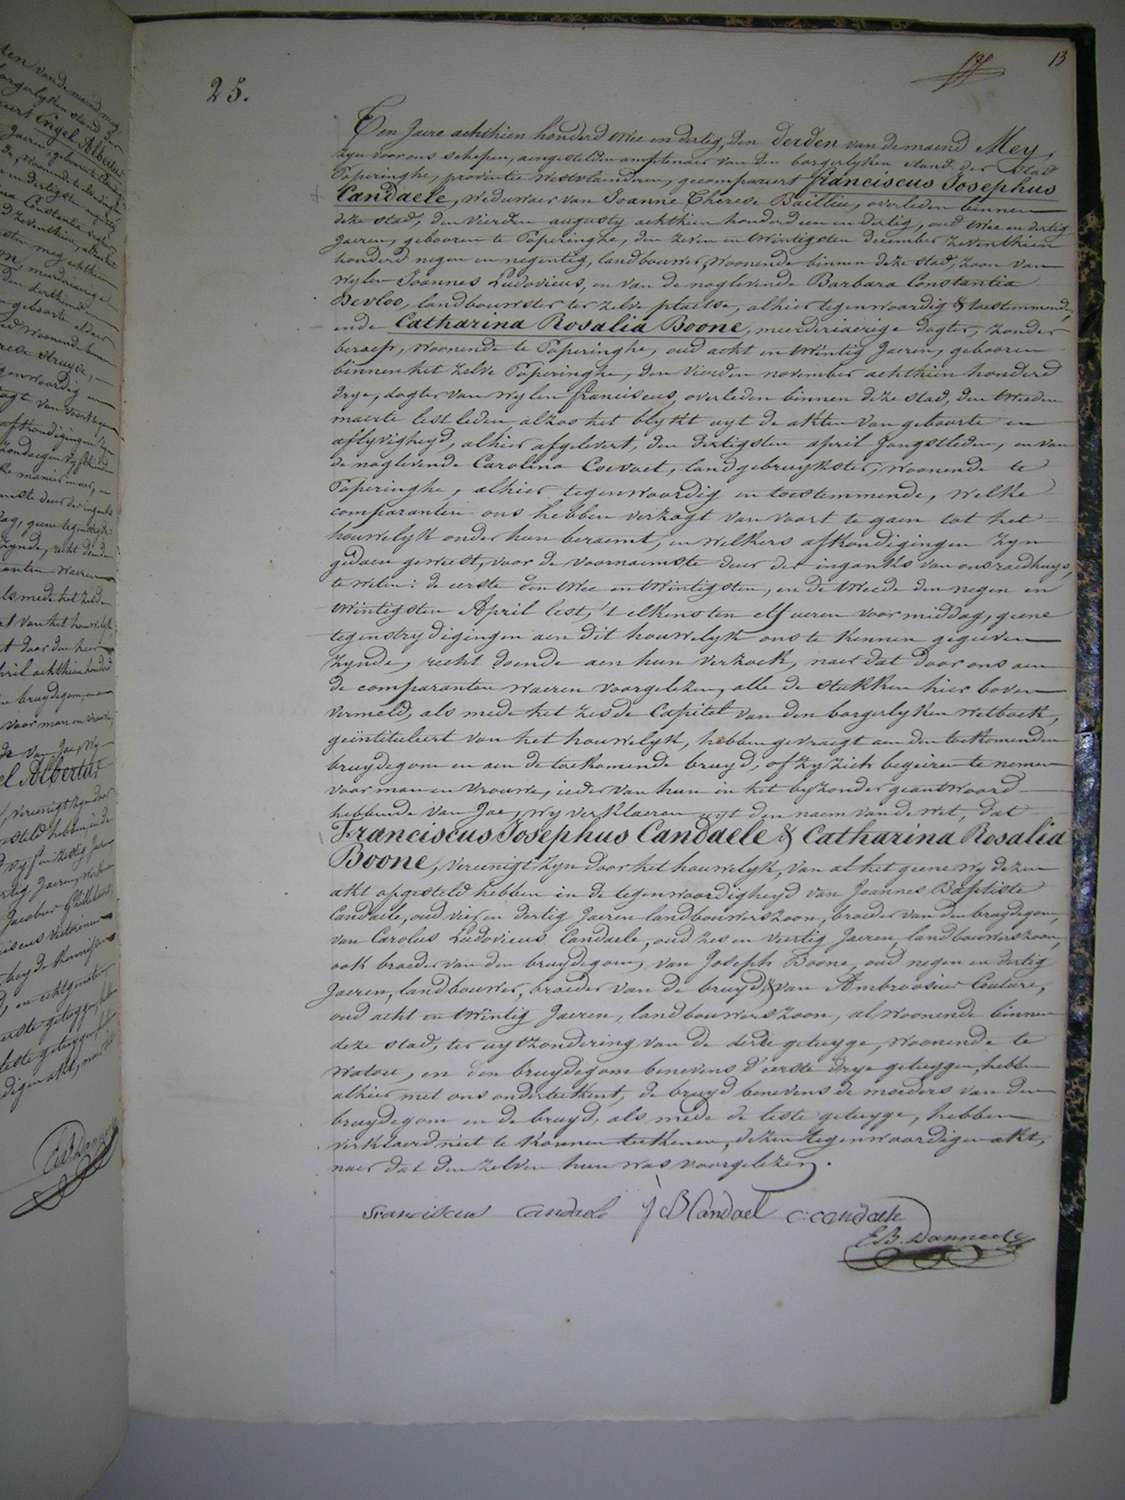 13
25.
Ten Jaere achthien honderd twee en dertig, den derden van de maend Mey,
zyn voor ons schepen, aengestelden amptenaer van den borgerlyken stand der Stad
Poperinghe, provintie Westvlaenderen, gecompareert franciscus Josephus
Candaele, weduwaer van Joanne Therese Baillieu, overleden binnen
deze stad, den vierden augusty achthien honderd een en dertig, oud twee en dertig
Jaeren, gebooren te Poperinghe, den zeven en twintigsten december zeventhien
honderd negen en negentig, landbouwer, woonende binnen deze stad, zoon van
wylen Joannes Ludovicus, en van de naglevende Barbara Constantia
Devloo, landbouwster ter zelve plaetse, alhier tegenwoordig & toestemmende,
ende Catharina Rosalia Boone, meerderiaerige dogter, zonder
beroep, woonende te Poperinghe, oud acht en twintig Jaeren, gebooren
binnen het zelve Poperinghe, den vierden november achthien honderd
drye, dogter van wylen franciscus, overleden binnen deze stad, den tweeden
maerte lest leden alzoo het blykt uyt de akten van geboorte en
aflyvigheyd, alhier afgelevert, den dertigsten april Jongstleden, en van
de naglevende Carolina Coevoet, landgebruykster, woonende te
Poperinghe, alhier tegenwoordig en toestemmende, welke
comparanten ons hebben verzogt van voort te gaen tot het
houwelyk onder hun beraemt, en welkers afkondigingen zyn
gedaen geweest, voor de voornaemste deur der ingank van ons raedhuys,
te weten: de eerste den twee en twintigsten, en de tweede den negen en
twintigsten April lest, 't elkensten elf ueren voor middag, geene
tegenstrydigingen aen dit houwelyk ons te kennen gegeeven
zynde, recht doende aen hun verzoek, naer dat door ons aen
de comparanten waeren voorgelezen, alle de stukken hier boven
vermeld, als mede het zesde Capitel van den borgerlyken wetboek,
geïntituleert van het houwelyk, hebben gevraegt aen den toekomenden
bruydegom en aen de toekomende bruyd, of zy zich begeeren te nemen
voor man en vrouwe, ieder van hun in het byzonder geantwoord
hebbende van Jae, wy verklaeren uyt den naem van de wet, dat
Franciscus Josephus Candaele & Catharina Rosalia
Boone, vereenigt zyn door het houwelyk, van al het geene wy dezen
akt opgesteld hebben in de tegenwoordigheyd van Joannes Baptiste
Candaele, oud vier en dertig Jaeren landbouwerszoon, broeder van den bruydegom,
van Carolus Ludovicus Candaele, oud zes en veertig Jaeren, landbouwerszoon,
ook broeder van den bruydegom, van Joseph Boone, oud negen en dertig
Jaeren, landbouwer, broeder van de bruyd & van Ambroosius
oud acht en twintig Jaeren, landbouwerszoon, al woonende binnen
deze stad, ter uytzondering van de derde getuyge, woonende te
Watou, en den bruydegom benevens d'eerste drye getuygen, hebben
alhier met ons onderteekent, de bruyd benevens de moeders van den
bruydegom en de bruyd, als mede de leste getuyge, hebben
verklaerd niet te konnen teekenen, dezen tegenwoordigen akt,
naer dat den zelven hun was voorgelezen.
Franciscus Candaele J B Candael C: Candaele